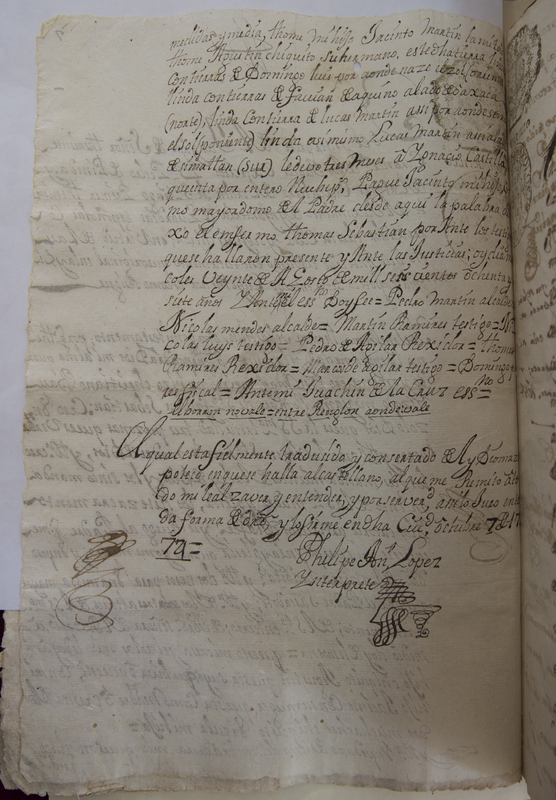 medidas y media, thome mi hijo Jacinto Martin la mitad
thome Agustin chiquito su hermano, este dha tierra linda
con tierras de Domingo luis por donde naze el sol (oriente)
linda con tierras de Facian de aquino a lado de oaxaca
(norte), linda con tierra de lucas Martin assi por donde se mete
el sol (poniente) linda asimismo lucas Martin assi a lado
de simatlan (sur) le devo tres meses a Ygnacio Castillo
que entra por entero Nueve pps, Pague Jacinto mi hijo
mo mayordomo de el Padre desde aqui la palabra di
xo el enfermo thomas Sebastian por Ante los testigos
que se hallaron presente y Ante las Justicias; oy dia mier
coles Veynte de Agosto de mill seis cientos ochenta y
siete años Y Ante el essno Doy fee = Pedro Martin alcalde
Nicolas mendes alcalde = Martin Ramires testigo = Ni
colas luys testigo = Pedro de Aguilar Rexidor = thomas
Ramires Rexidor = Marcos de aguilar testigo = Domingo
tes fiscal = Ante mi Juachin de la Cruz essno =
el borron no vale = entre Renglon donde vale
El qual esta fielmente tradusido y consertado de el Ydioma za
poteco en que se halla al castellano, al que me Remito a to
do mi leal zaver y entender, y por ser verd, asi lo Juro en to
da forma de dro, y lo firme en dha Ciud. octubre 7 de 17
74 =
Phelipe Anto Lopez
Ynterprete